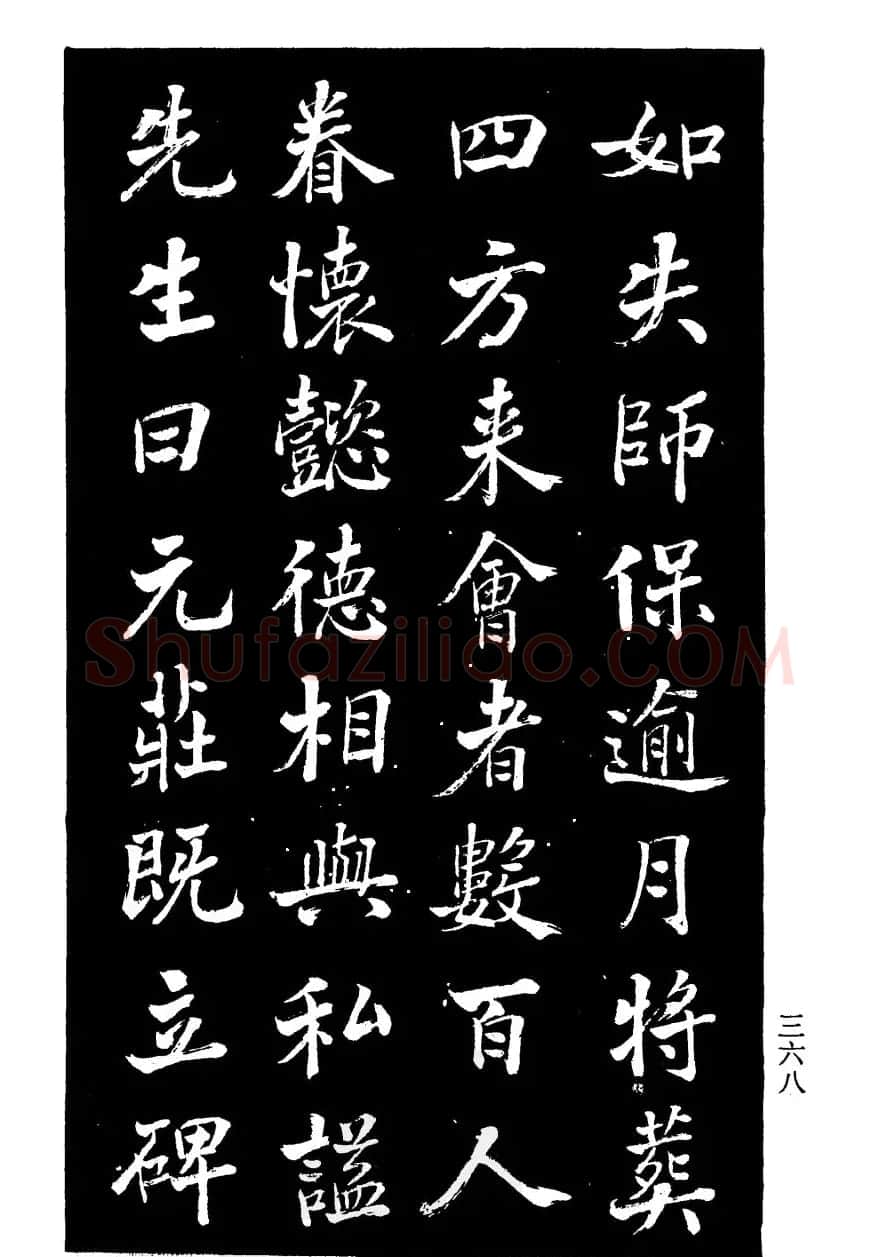 如失師保逾月将葬
四方来會者數百人
眷懷懿德相與私謚
先生曰元莊既立碑
三六八
Shufaziliao.COM